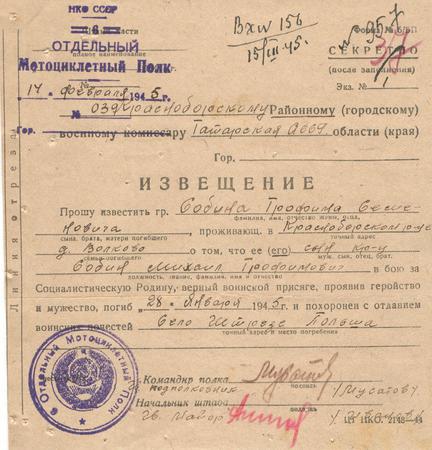 НКО СССР
Вх № 156
15/III 45.
6
ОТДЕЛЬНЫЙ
Мотоциклетный Полк
Форма № Б/БП
СЕКРЕТНО
(после заполнения)
Экз. № 1
17 февраля 1945 г.
№ 039
Красноборскому Районному (городскому)
Гор.
военному комиссару Татарская АССР области (края)
Гор.
ИЗВЕЩЕНИЕ
Прошу известить гр. Собина Трофима Семе-
фамилия, имя, отчество жены, отца,
новича, проживающ. в Красноборском р-не
сына, брата, матери погибшего
точный адрес
д. Волково о том, что ее (его) сын кр-ц
семьи погибшего
муж, сын, отец, брат,
Собин Михаил Трофимович в бою за
должность, звание, фамилия, имя и отчество
Социалистическую Родину, верный воинской присяге, проявив геройство
и мужество, погиб 28 января 1945 г. и похоронен с отданием
воинских почестей Село Штрезе Польша
точный адрес и место погребения
Линия отреза
6 Отдельный Мотоциклетный Полк
Командир полка
подполковник
подпись
/Мусатов/
Начальник штаба
гв. майор
ЦБ НКО. 2148—44